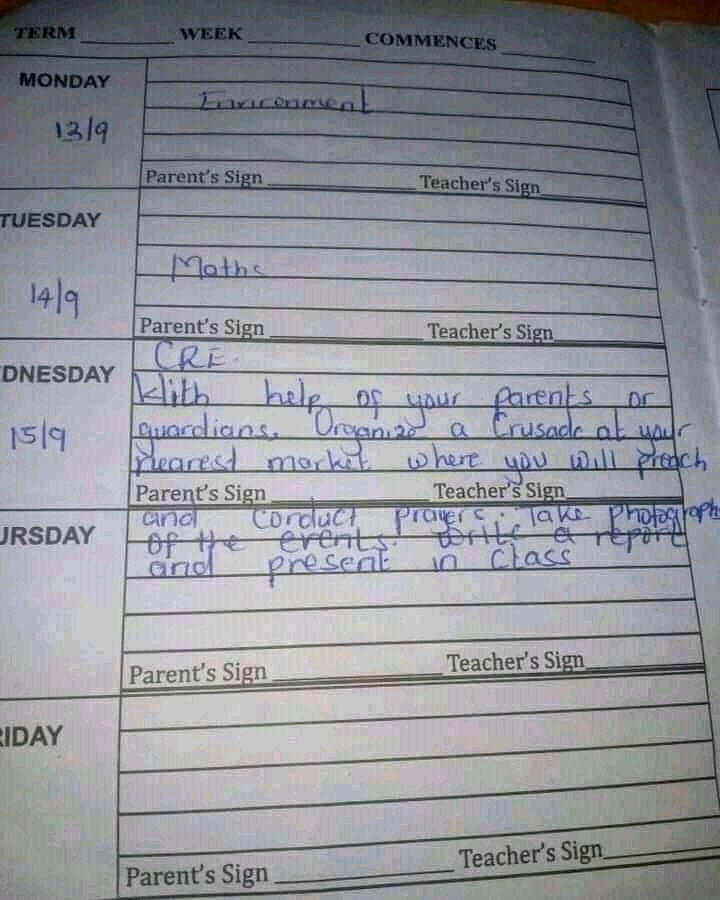 TERM WEEK COMMENCES
MONDAY
Environment
13/9
Parent's Sign Teacher's Sign
TUESDAY
Maths
14/9
Parent's Sign Teacher's Sign
CRE.
DNESDAY
With help of your parents or
15/9
guardians. Organize a Crusade at your
nearest market where you will preach
Parent's Sign Teacher's Sign
URSDAY
and conduct prayers. Take photographs
of the events. Write a report
and present in Class
Parent's Sign Teacher's Sign
RIDAY
Parent's Sign Teacher's Sign